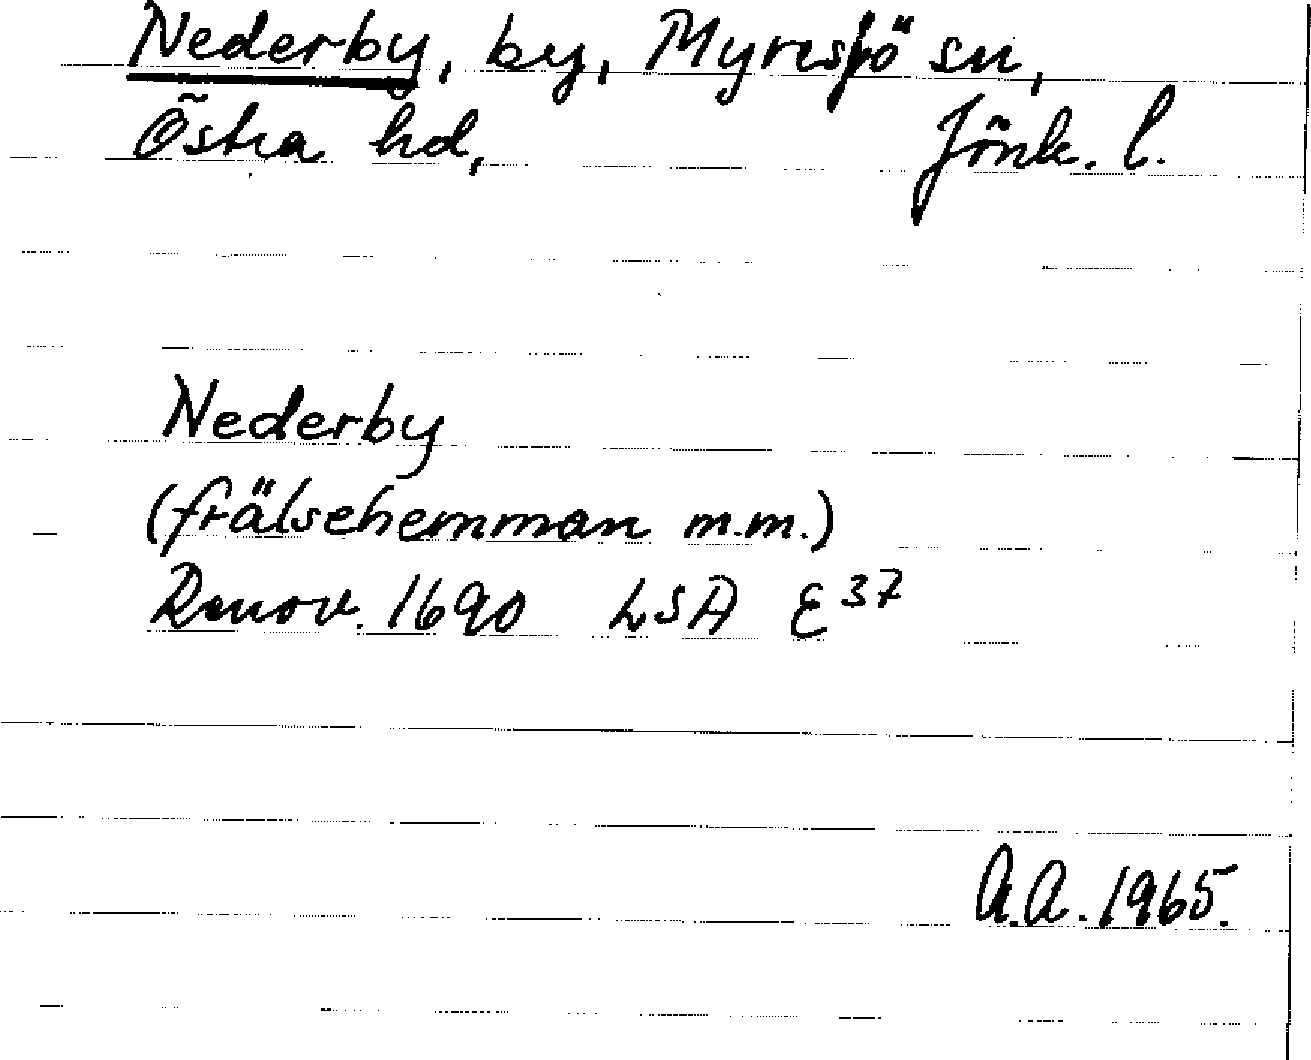 Nederby, by, Myresjö sn,
Östra hd, Jönk. l.
Nederby
(frälsehemman m.m.)
Renov. 1690 LSA E 37
A.A. 1965.